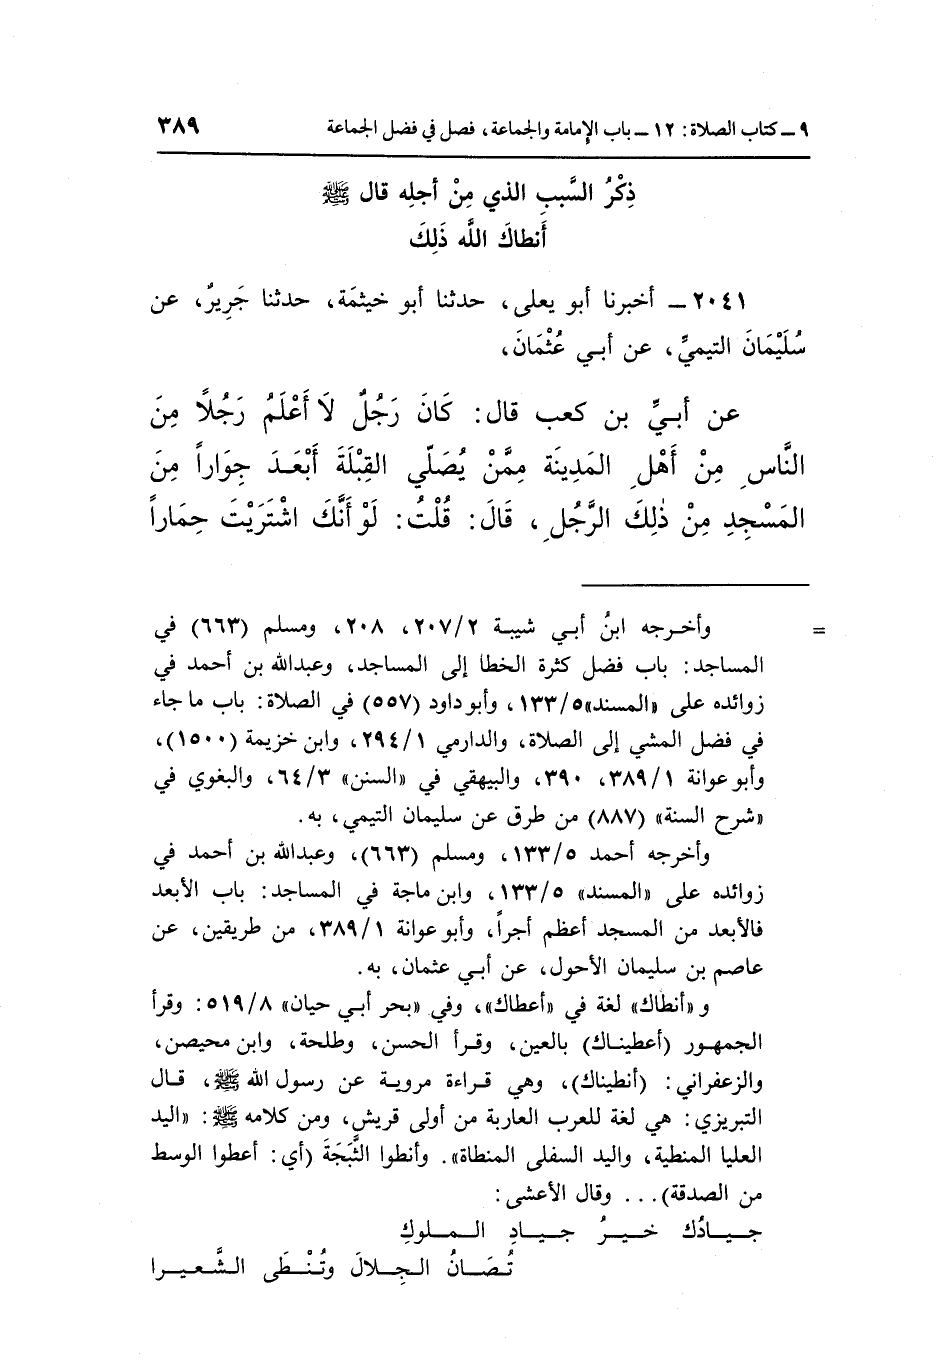 ٩ ــ كتاب الصلاة: ١٢ ــ باب الإمامة والجماعة، فصل في فضل الجماعة ٣٨٩
ذِكْرُ السَّببِ الذي مِنْ أجلِه قال ﷺ
أَنطاكَ اللَّه ذَلِكَ
٢٠٤١ ــ أخبرنا أبو يعلى، حدثنا أبو خيثمَة، حدثنا جَرِيرٌ، عن
سُلَيْمَانَ التيميِّ، عن أبـي عُثْمَانَ،
عن أبيِّ بن كعب قال: كَانَ رَجُلٌ لاَ أَعْلَمُ رَجُلاً مِنَ
النَّاسِ مِنْ أَهْلِ المَدِينَة مِمَّنْ يُصَلّي القِبْلَةَ أَبْعَدَ جِوَاراً مِنَ
المَسْجِدِ مِنْ ذٰلِكَ الرَّجُلِ، قَالَ: قُلْتُ: لَوْ أنَّكَ اشْتَرَيْتَ حِمَاراً
= وأخـرجه ابنُ أبـي شيبة ٢٠٧/٢، ٢٠٨، ومسلم (٦٦٣) في
المساجد: باب فضل كثرة الخطا إلى المساجد، وعبدالله بن أحمد في
زوائده على «المسند»١٣٣/٥، وأبو داود (٥٥٧) في الصلاة: باب ما جاء
في فضل المشي إلى الصلاة، والدارمي ٢٩٤/١، وابن خزيمة (١٥٠٠)،
وأبو عوانة ٣٨٩/١، ٣٩٠، والبيهقي في «السنن» ٦٤/٣، والبغوي في
«شرح السنة» (٨٨٧) من طرق عن سليمان التيمي، به.
وأخرجه أحمد ١٣٣/٥، ومسلم (٦٦٣)، وعبدالله بن أحمد في
زوائده على «المسند» ١٣٣/٥، وابن ماجة في المساجد: باب الأبعد
فالأبعد من المسجد أعظم أجراً، وأبو عوانة ٣٨٩/١، من طريقين، عن
عاصم بن سليمان الأحول، عن أبـي عثمان، به.
و «أنطاك» لغة في «أعطاك»، وفي «بحر أبـي حيان» ٥١٩/٨: وقرأ
الجمهـور (أعطينـاك) بالعين، وقـرأ الحسن، وطلحة، وابن محيصن،
والزعفراني: (أنطيناك)، وهي قـراءة مرويـة عن رسول الله ﷺ، قـال
التبريزي: هي لغة للعرب العاربة من أولى قريش، ومن كلامه ﷺ: «اليد
العليا المنطية، واليد السفلى المنطاة». وأنطوا الثَّبَجَةَ (أي: أعطوا الوسط
من الصدقة)... وقال الأعشى:
جـيـادُك خـيـرُ جـيـادِ الـمـلوكِ
تُـصَـانُ الـجِـلالَ وتُـنْـطَى الـشَّـعـيـرا